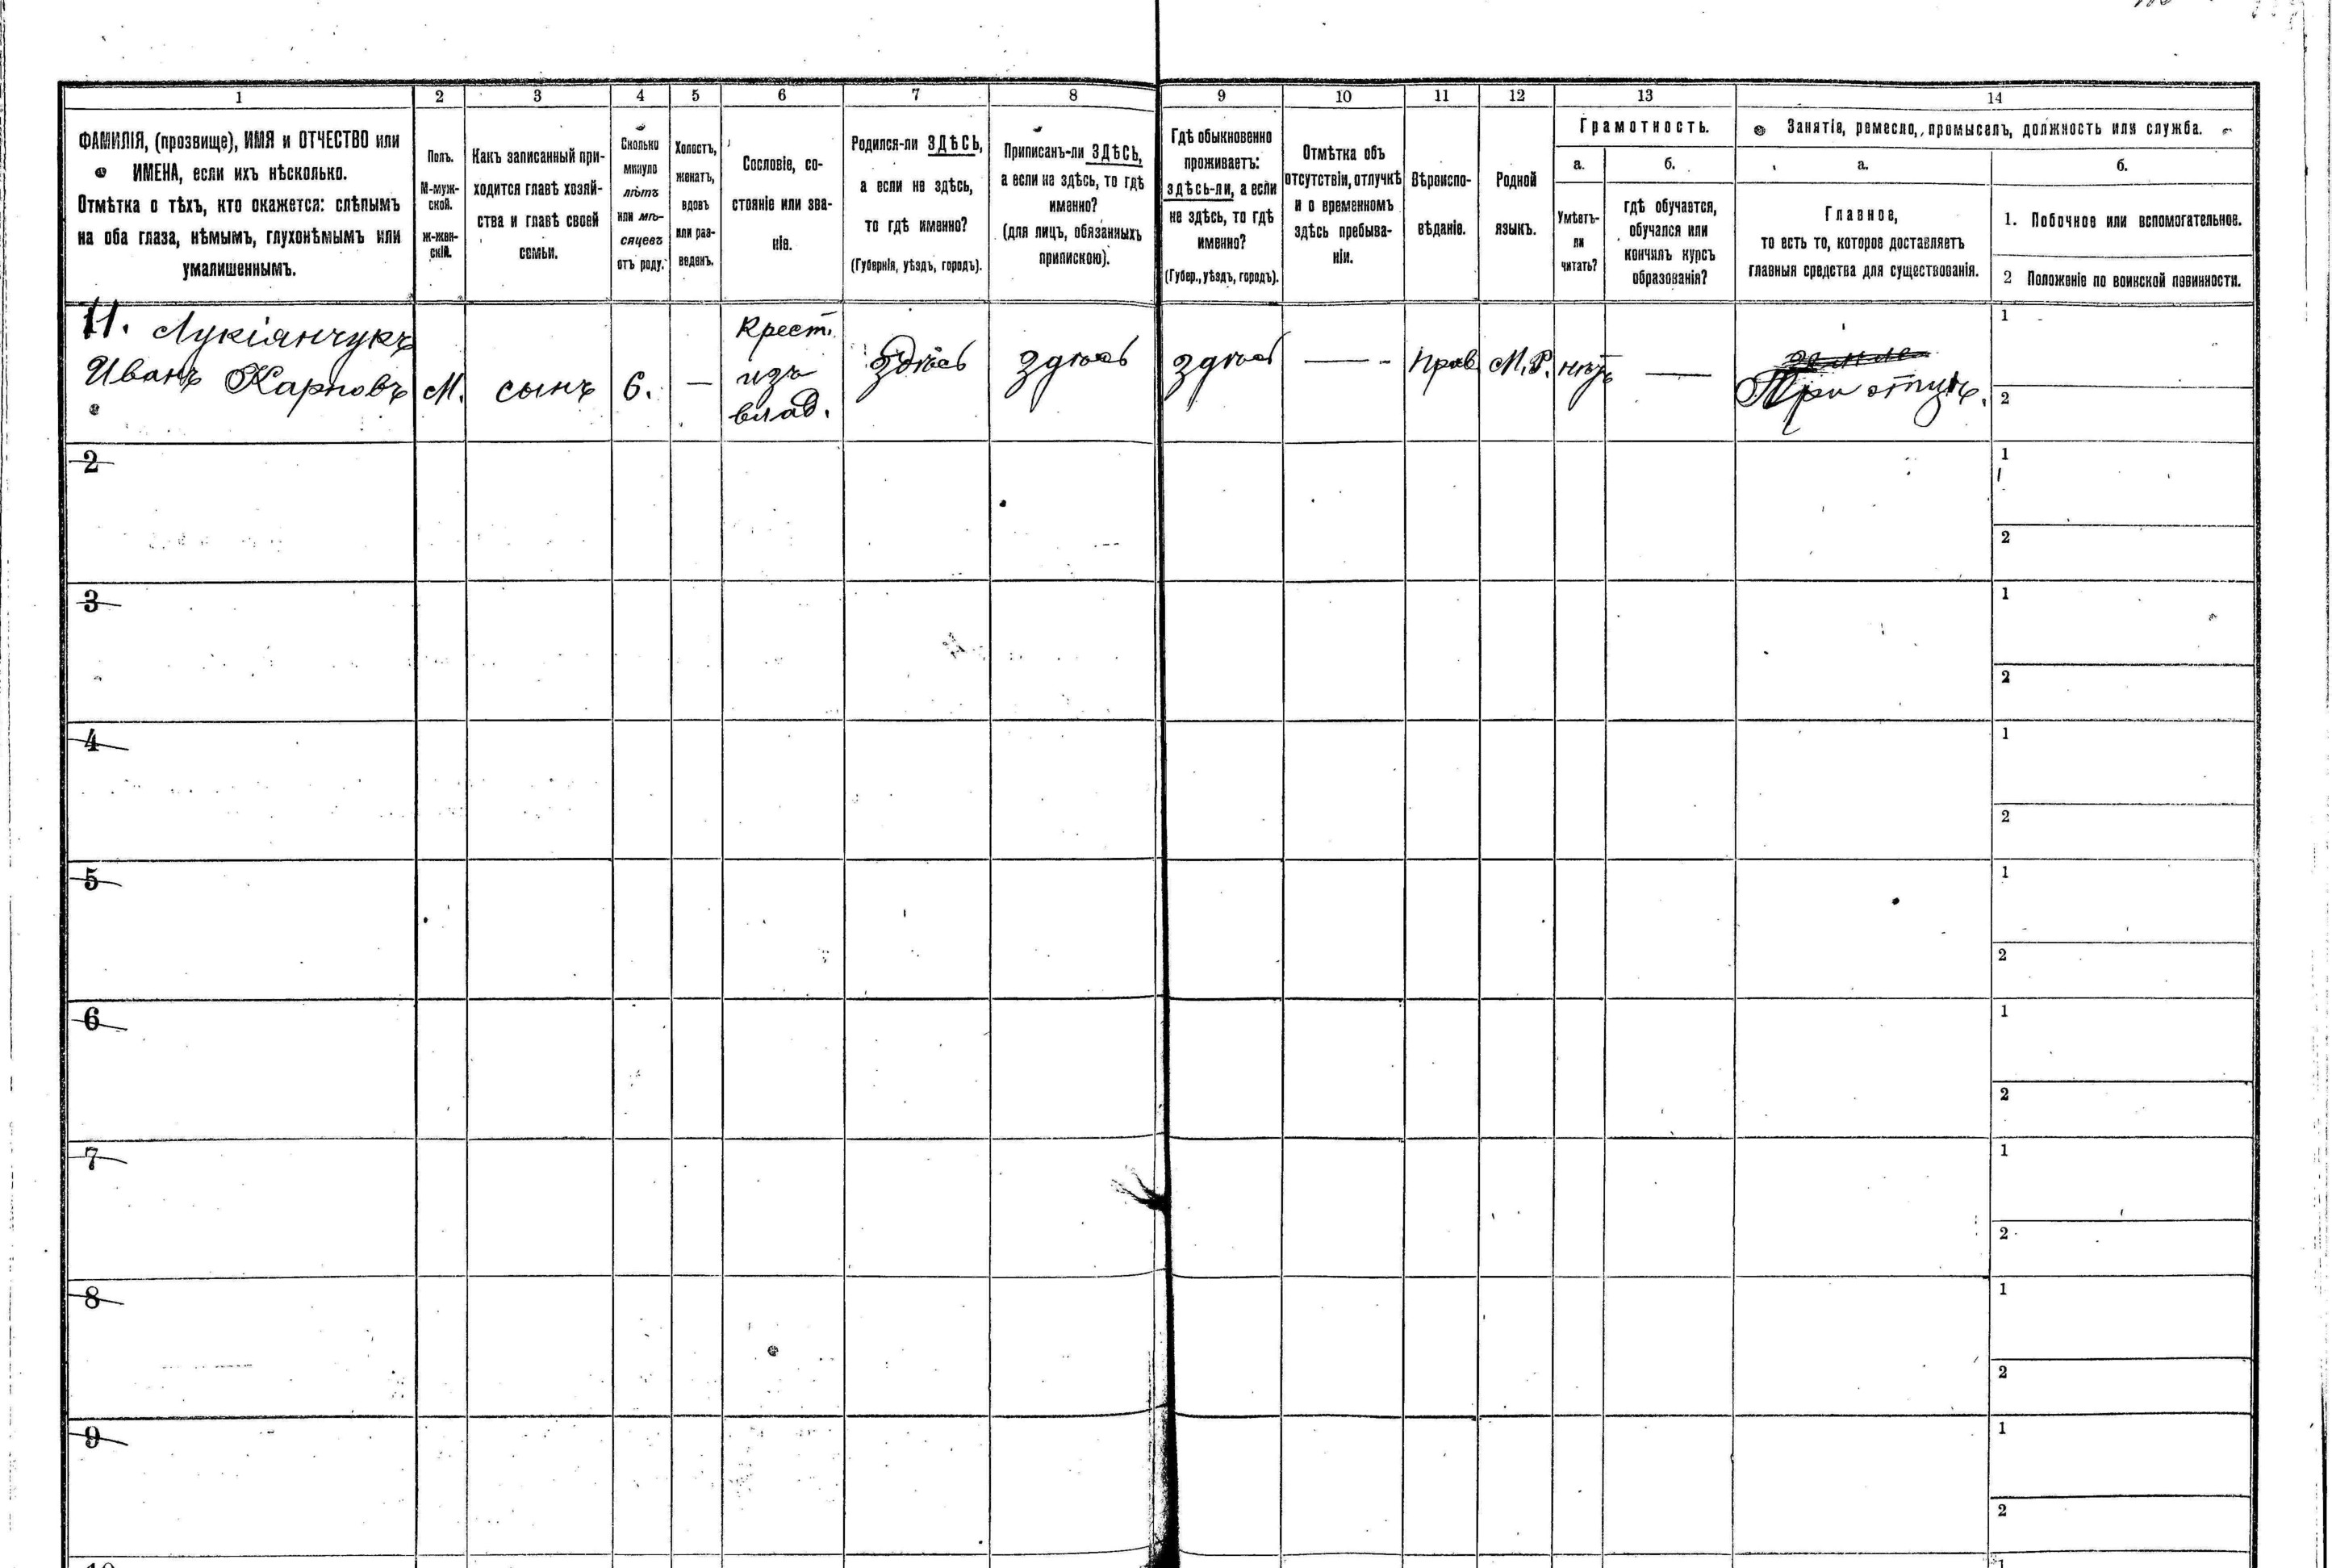 1 2 3 4 5 6 7 8 9 10 11 12 13 14
ФАМИЛІЯ, (прозвище), ИМЯ и ОТЧЕСТВО или
ИМЕНА, если ихъ нѣсколько.
Отмѣтка о тѣхъ, кто окажется: слѣпымъ
на оба глаза, нѣмымъ, глухонѣмымъ или
умалишеннымъ.
Полъ.
М-муж-
ской.
ж-жен-
скій.
Какъ записанный при-
ходится главѣ хозяй-
ства и главѣ своей
семьи.
Сколько
минуло
лѣтъ
или мѣ-
сяцевъ
отъ роду.
Холостъ,
женатъ,
вдовъ
или раз-
веденъ.
Сословіе, со-
стояніе или зва-
ніе.
Родился-ли ЗДѢСЬ,
а если не здѣсь,
то гдѣ именно?
(Губернія, уѣздъ, городъ).
Приписанъ-ли ЗДѢСЬ,
а если не здѣсь, то гдѣ
именно?
(для лицъ, обязанныхъ
припискою).
Гдѣ обыкновенно
проживаетъ:
здѣсь-ли, а если
не здѣсь, то гдѣ
именно?
(Губер., уѣздъ, городъ).
Отмѣтка объ
отсутствіи, отлучкѣ
и о временномъ
здѣсь пребыва-
ніи.
Вѣроиспо-
вѣданіе.
Родной
языкъ.
Грамотность.
а.
Умѣетъ-
ли
читать?
б.
гдѣ обучается,
обучался или
кончилъ курсъ
образованія?
Занятіе, ремесло, промыселъ, должность или служба.
а.
Главное,
то есть то, которое доставляетъ
главныя средства для существованія.
б.
1. Побочное или вспомогательное.
2 Положеніе по воинской повинности.
11. Лукіянчукъ
Иванъ Карповъ
М.
сынъ
6.
—
Крест.
изъ
влад.
Здѣсь
здѣсь
здѣсь
—
Прав
М.Р.
нѣтъ
—
При отцѣ.
1
2
2
1
2
3
1
2
4
1
2
5
1
2
6
1
2
7
1
2
8
1
2
9
1
2
1